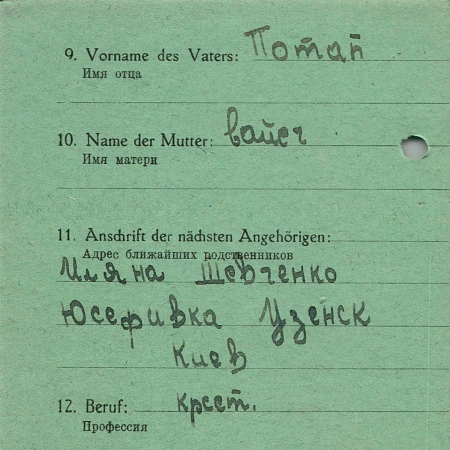 9. Vorname des Vaters: Потап
Имя отца
10. Name der Mutter:
Имя матери
11. Anschrift der nächsten Angehörigen:
Адрес ближайших родственников
Иляна Шевченко
Юсефивка Узенск
Киев
12. Beruf: крест.
Профессия